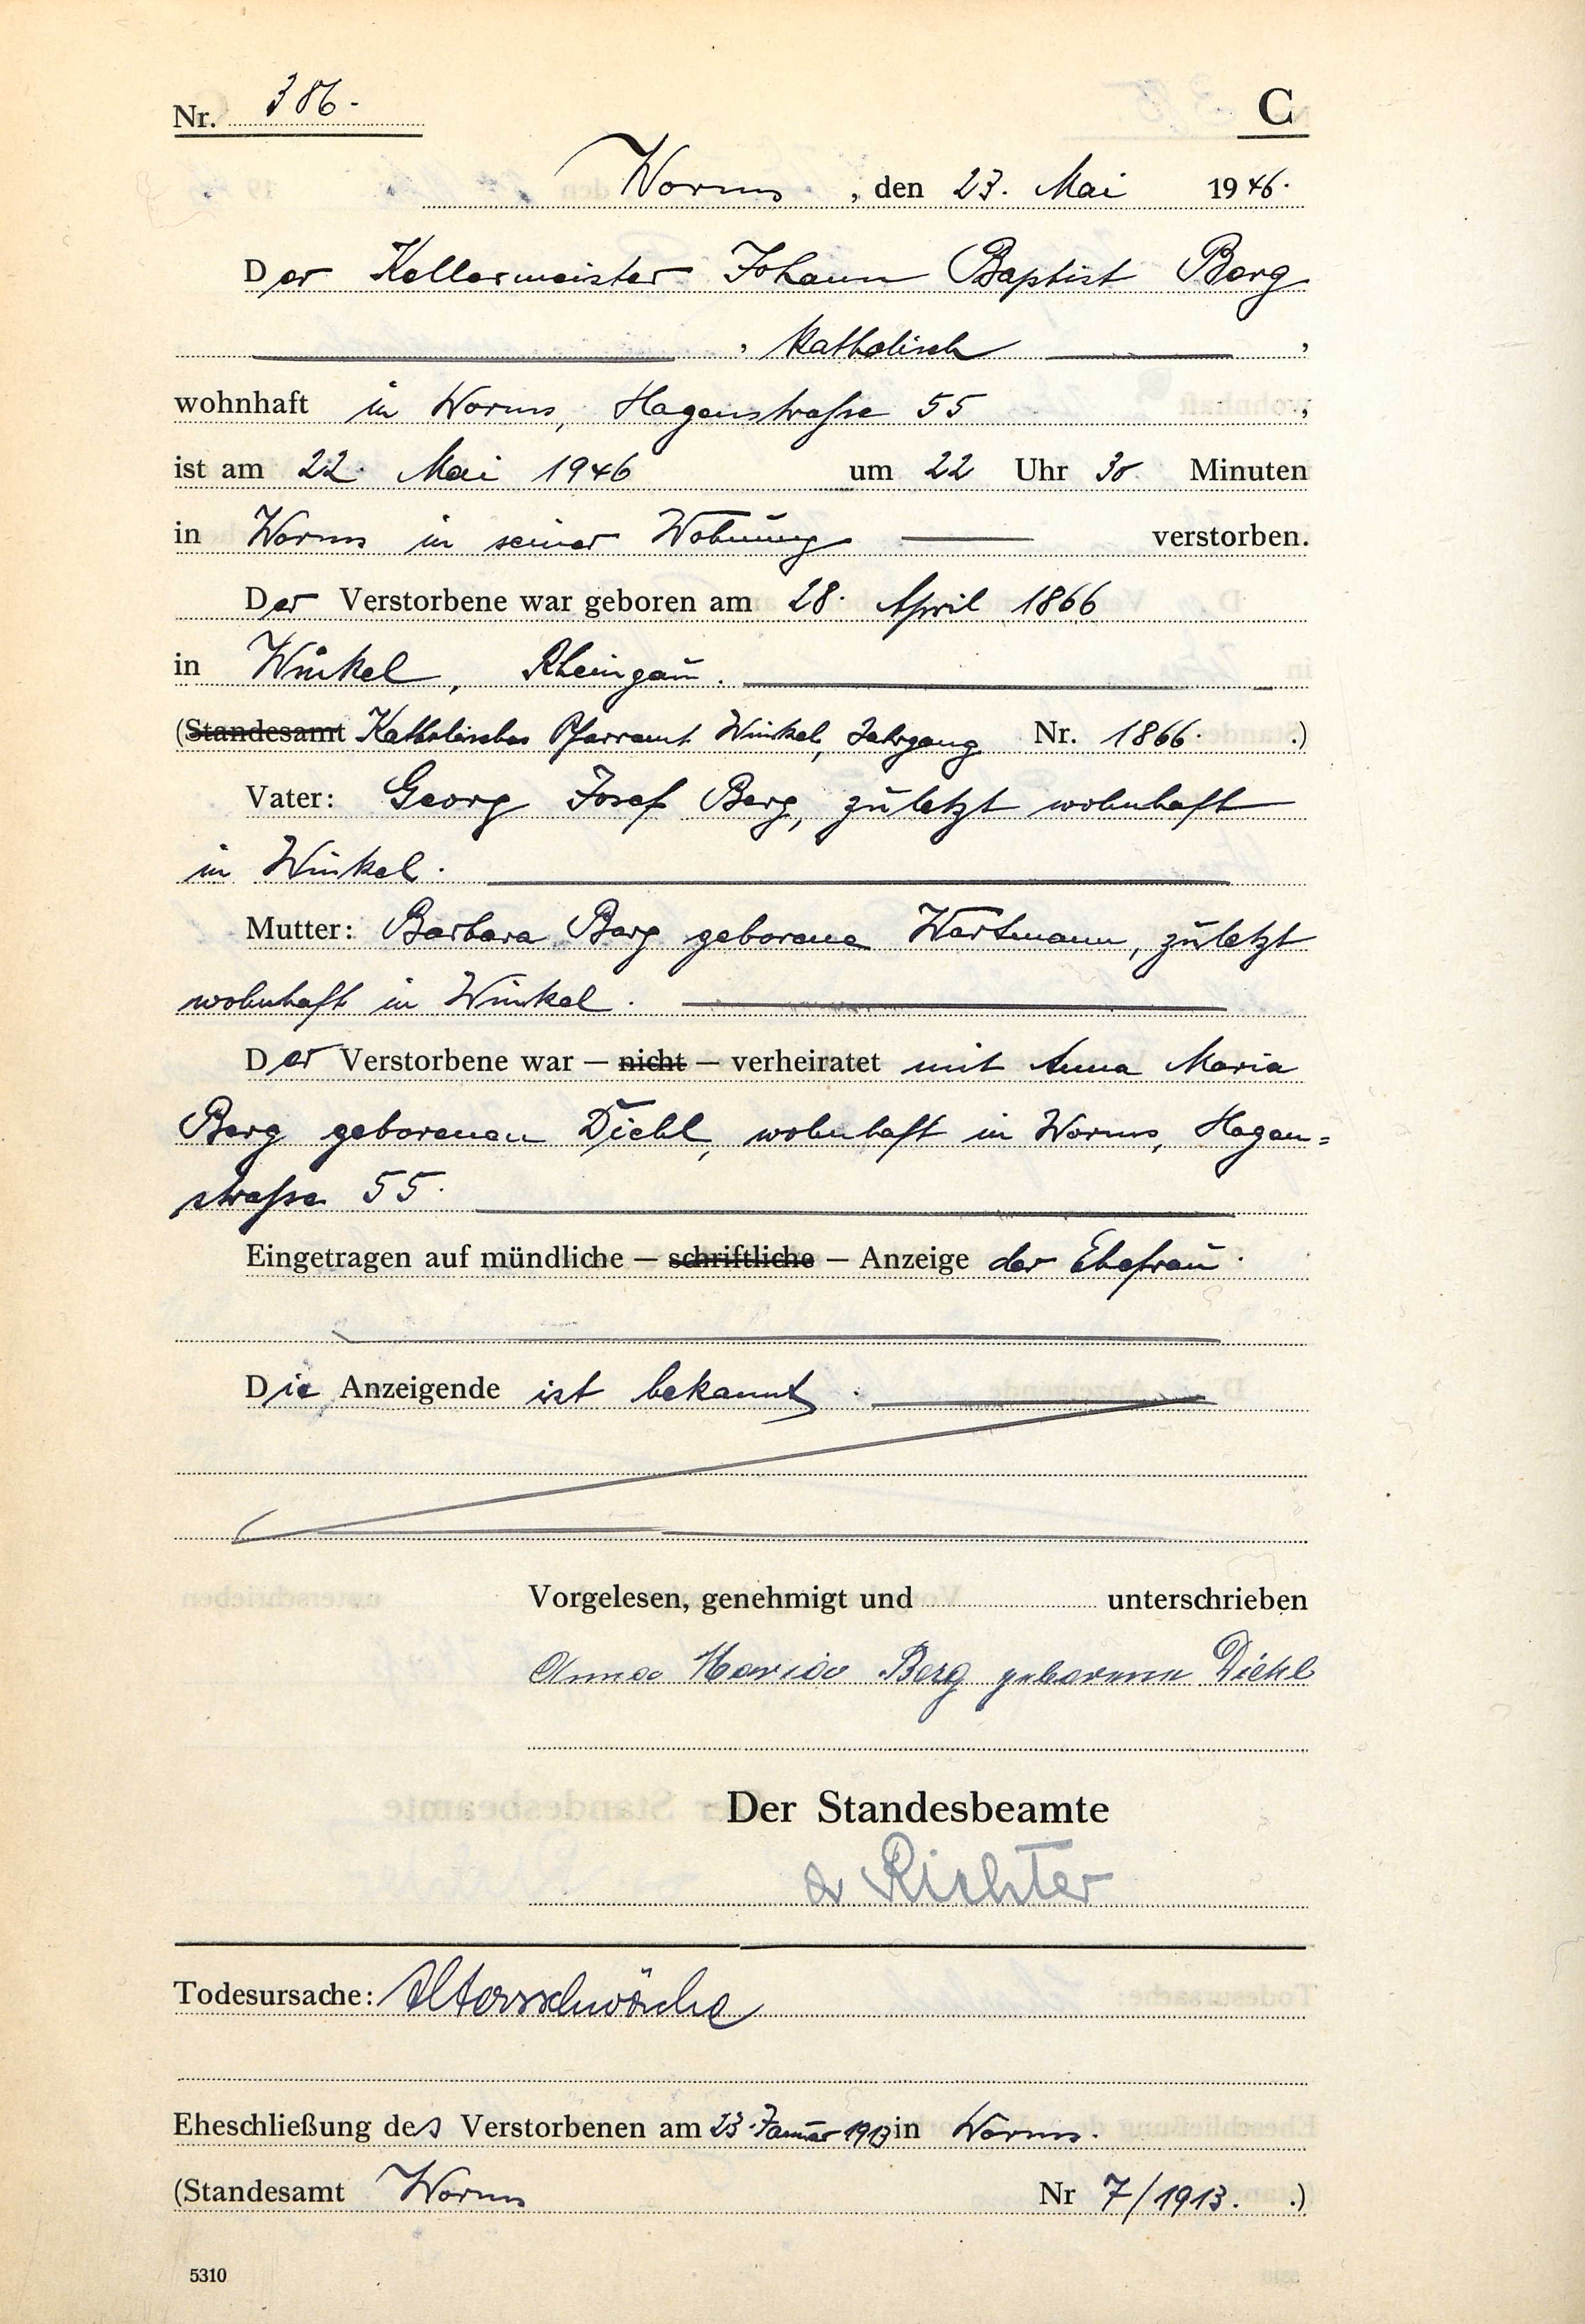 Nr. 386. C
Worms, den 23. Mai 1946.
Der Kellermeister Johann Baptist Berg
, katholisch ,
wohnhaft in Worms, Hagenstraße 55 ,
ist am 22. Mai 1946 um 22 Uhr 30 Minuten
in Worms in seiner Wohnung verstorben.
Der Verstorbene war geboren am 28. April 1866
in Winkel, Rheingau.
(Standesamt Katholisches Pfarramt Winkel, Jahrgang Nr. 1866. .)
Vater: Georg Josef Berg, zuletzt wohnhaft
in Winkel.
Mutter: Barbara Berg geborene Wartmann, zuletzt
wohnhaft in Winkel.
Der Verstorbene war — nicht — verheiratet mit Anna Maria
Berg geborenen Diehl, wohnhaft in Worms, Hagen=
straße 55.
Eingetragen auf mündliche — schriftliche — Anzeige der Ehefrau.
Die Anzeigende ist bekannt.
Vorgelesen, genehmigt und unterschrieben
Anna Maria Berg geborene Diehl
Der Standesbeamte
Richter
Todesursache: Altersschwäche
Eheschließung des Verstorbenen am 23. Januar 1913 in Worms.
(Standesamt Worms Nr 7/1913. .)
5310